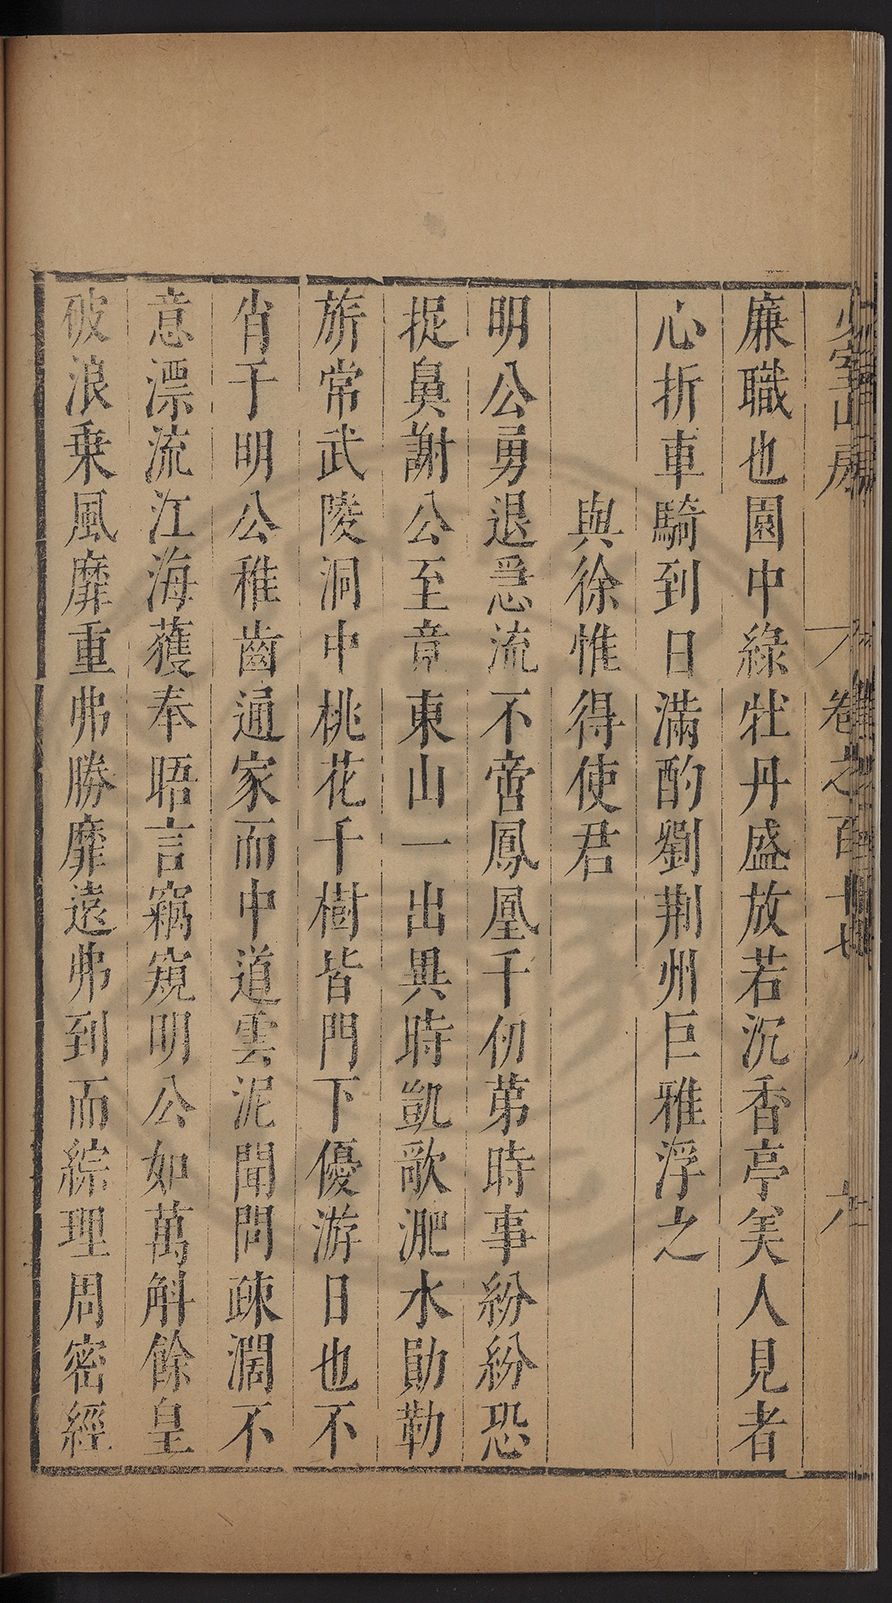 少室山房
卷之百十七
六
廉職也園中綠牡丹盛放若沉香亭美人見者
心折車騎到日滿酌劉荆州巨雅浮之
與徐惟得使君
明公勇退急流不啻鳳凰千仞苐時事紛紛恐
捉鼻謝公至章東山一出異時凱歌淝水勛勒
旂常武陵洞中桃花千樹皆門下優游日也不
肖于明公稚齒通家而中道雲泥聞問疎濶不
意漂流江海獲奉晤言竊窺明公如萬斛餘皇
破浪乗風靡重弗勝靡遠弗到而綜理周密經